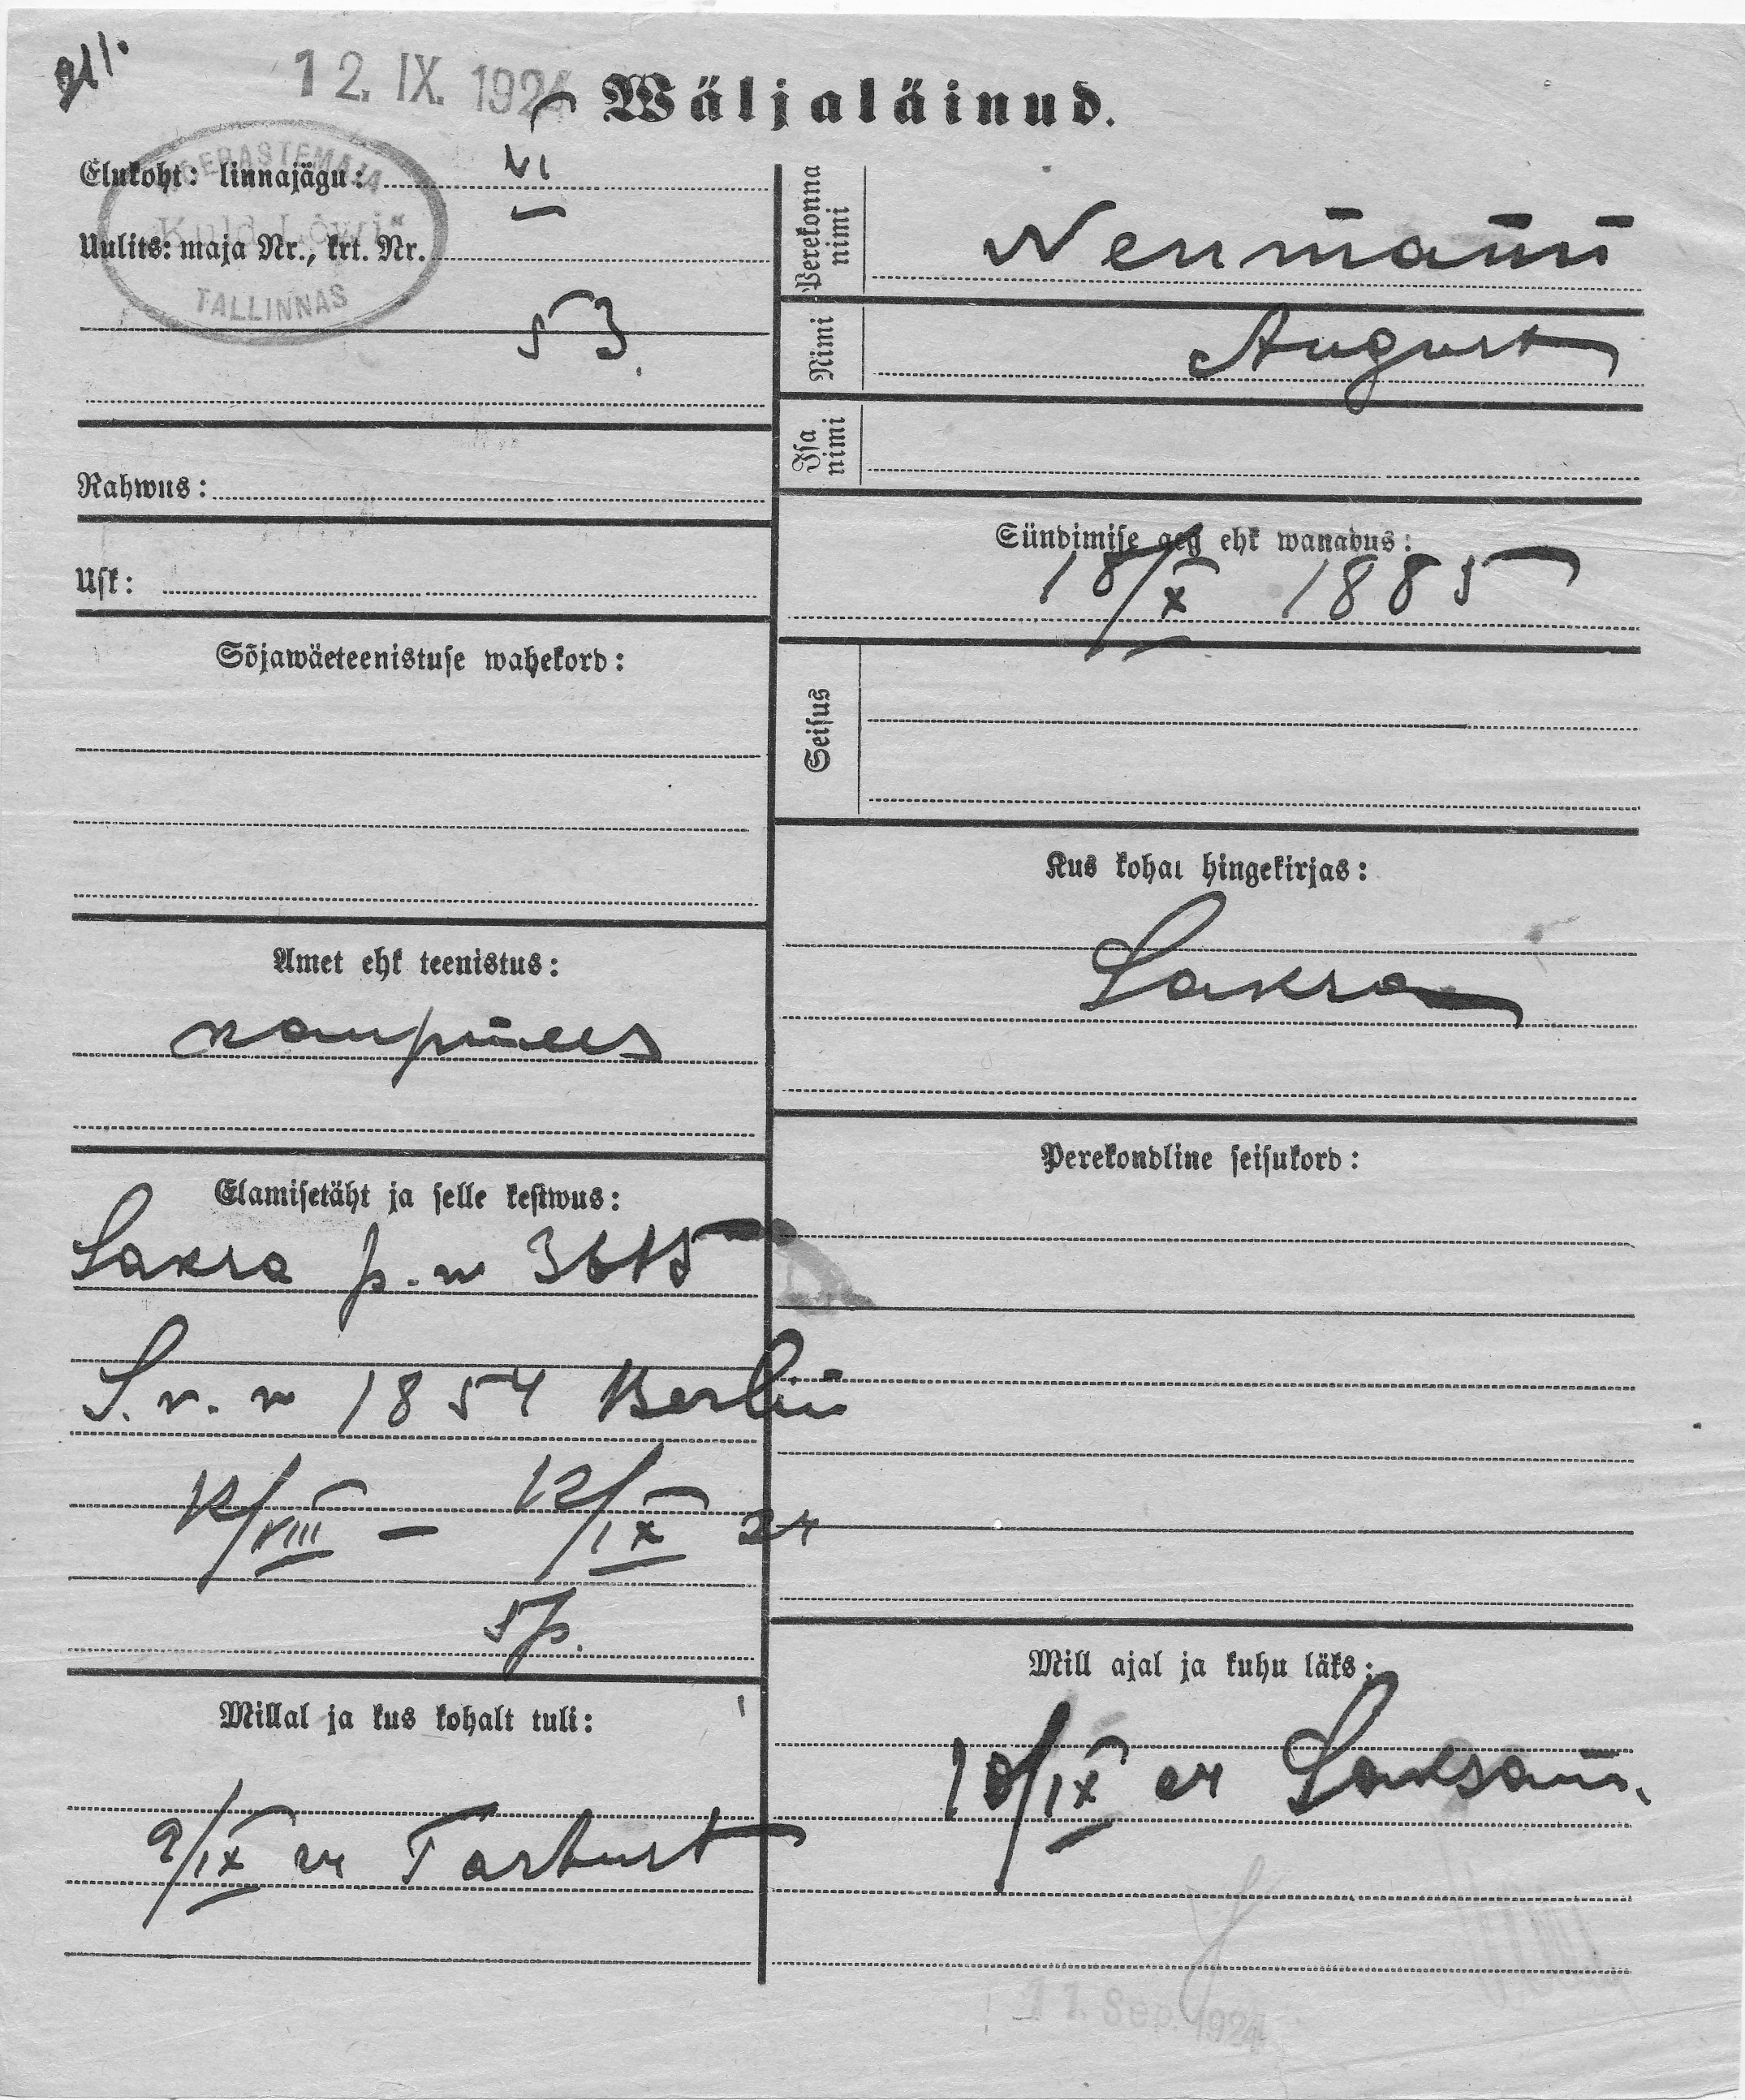 12. IX. 1924
Wäljaläinud.
Elukoht: linnajägu: VI
Uulits: maja Nr., krt. Nr.
VÕÕRASTEMAJA
„Kuld Lõwi“
TALLINNAS
53.
Rahwus:
Usk:
Sõjawäeteenistuse wahekord:
Amet ehk teenistus:
kaupmees
Elamisetäht ja selle kestwus:
Saksa p. N 3615
S. v. N 1854 Berlin
12/VIII – 12/IX 24
5 p.
Millal ja kus kohalt tuli:
9/IX 24 Tartust
Perekonna nimi
Neumann
Nimi
August
Isa nimi
Sündimise aeg ehk wanadus:
18/X 1885
Seisus
Kus kohal hingekirjas:
Saksa
Perekondline seisukord:
Mill ajal ja kuhu läks:
10/IX 24 Saksam.
11. Sep. 1924